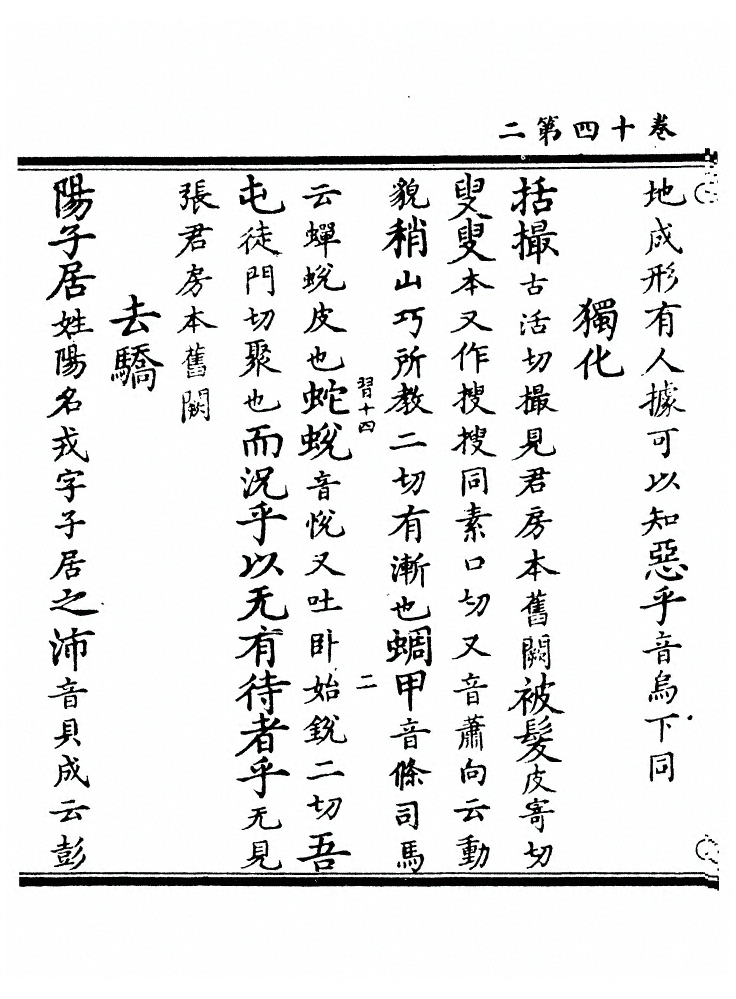 卷十四第二
地成形有人據可以知惡乎音烏下同
獨化
括撮古活切撮見君房本舊闕被髮皮寄切
叟叟本又作搜搜同素口切又音蕭向云動
貌稍山巧所教二切有漸也蜩甲音條司馬
習十四
二
云蟬蛻皮也蛇蛻音悅又吐卧始銳二切吾
屯徒門切聚也而況乎以无有待者乎无見
張君房本舊闕
去驕
陽子居姓陽名戎字子居之沛音貝成云彭